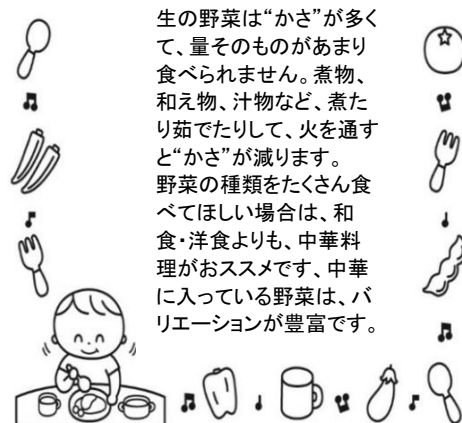 生の野菜は“かさ”が多く
て、量そのものがあまり
食べられません。煮物、
和え物、汁物など、煮た
り茹でたりして、火を通す
と“かさ”が減ります。
野菜の種類をたくさん食
べてほしい場合は、和
食・洋食よりも、中華料
理がおススメです、中華
に入っている野菜は、バ
リエーションが豊富です。